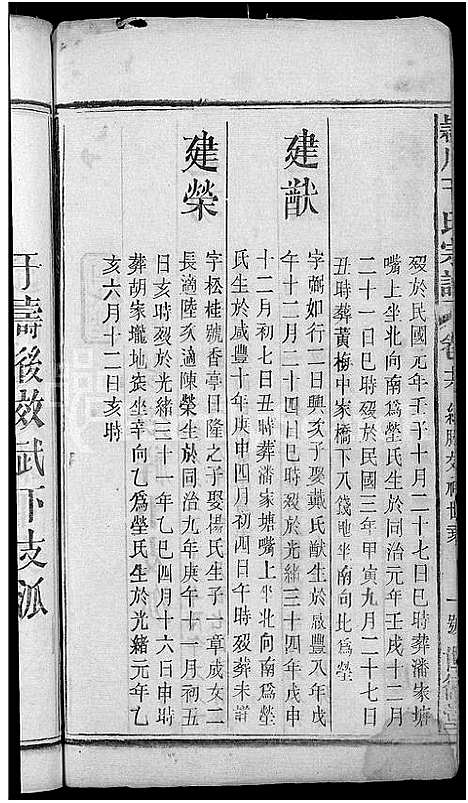 潁川 氏宗譜 卷 世系 一號
歿於民國元年壬子十月二十七日巳時葬潘家塘
嘴上坐北向南爲塋氏生於同治元年壬戌十二月
二十一日巳時歿於民國三年甲寅九月二十七日
丑時葬黃梅中家橋下八錢地坐南向北爲塋
建猷
字弼如行二日興亥子娶戴氏猷生於咸豐八年戊
午十二月二十日寅時歿於光緒三十四年戊申
十二月初七日丑時葬潘家塘嘴上坐北向南爲塋
氏生於咸豐十年庚申四月初四日時歿葬未詳
建榮
字松桂號香亭日隆之子娶揚氏生子一章成女二
長適陸次適陳榮生於同治九年庚午十一月初五
日亥時歿於光緒三十一年乙巳四月十六日申時
葬胡家壠地坐辛向乙爲塋氏生於光緒元年乙
亥六月十二日亥時
子壽後效武下支派